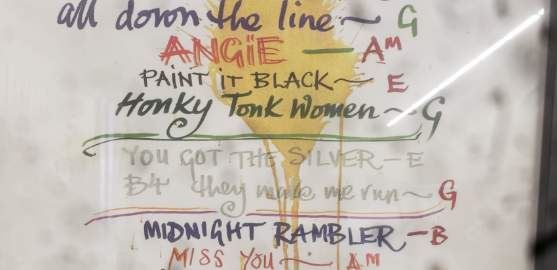 all down the line ~ G
ANGiE — Am
PAINT iT BLACK ~ E
Honky Tonk Women ~ G
YOU GOT THE SILVER - E
B4 they make me run ~ G
MIDNIGHT RAMBLER - B
MISS YOU - AM